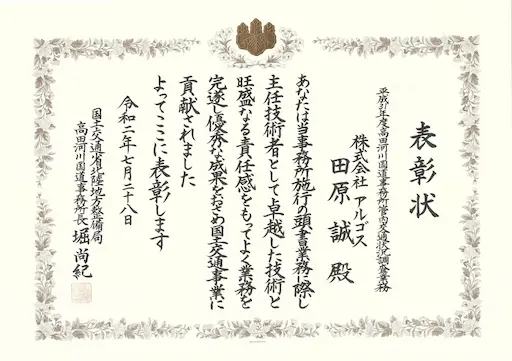 表彰状
平成31年度高田河川国道事務所管内交通状況調査業務
株式会社 アルゴス
田原 誠 殿
あなたは当事務所施行の頭書業務に際し
主任技術者として卓越した技術と
旺盛なる責任感をもってよく業務を
完遂し優秀な成果をおさめ国土交通事業に
貢献されました
よってここに表彰します
令和二年七月二十八日
国土交通省北陸地方整備局
高田河川国道事務所長 堀 尚紀